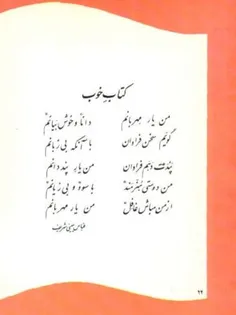 کتاب خوب
من یار مهربانم دانا و خوش بیانم
گویم سخن فراوان با آنکه بی زبانم
پندت دهم فراوان من یار پند دانم
من دوستی هنرمند با سود و بی زیانم
از من مباش غافل من یار مهربانم
عباس یمینی شریف